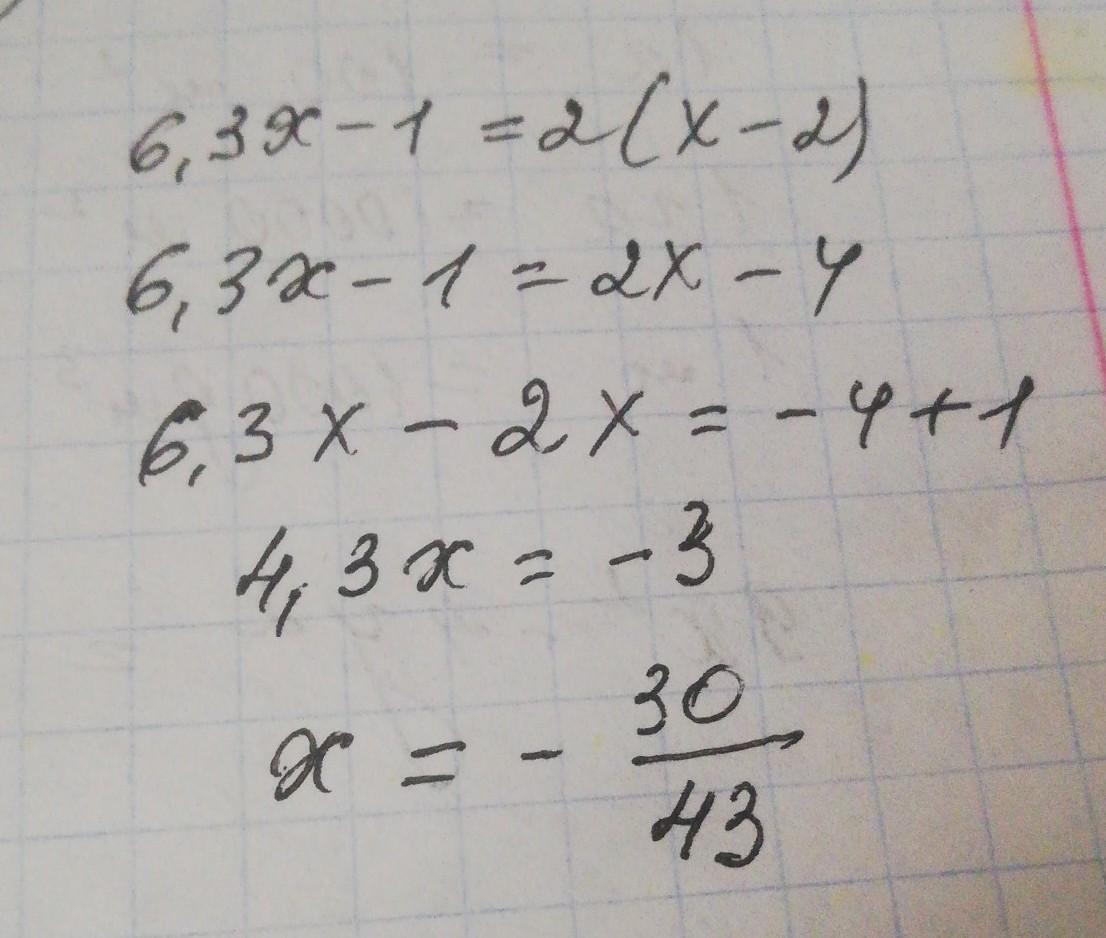 6,3x - 1 = 2(x - 2)
6,3x - 1 = 2x - 4
6,3x - 2x = -4 + 1
4,3x = -3
x = - 30/43